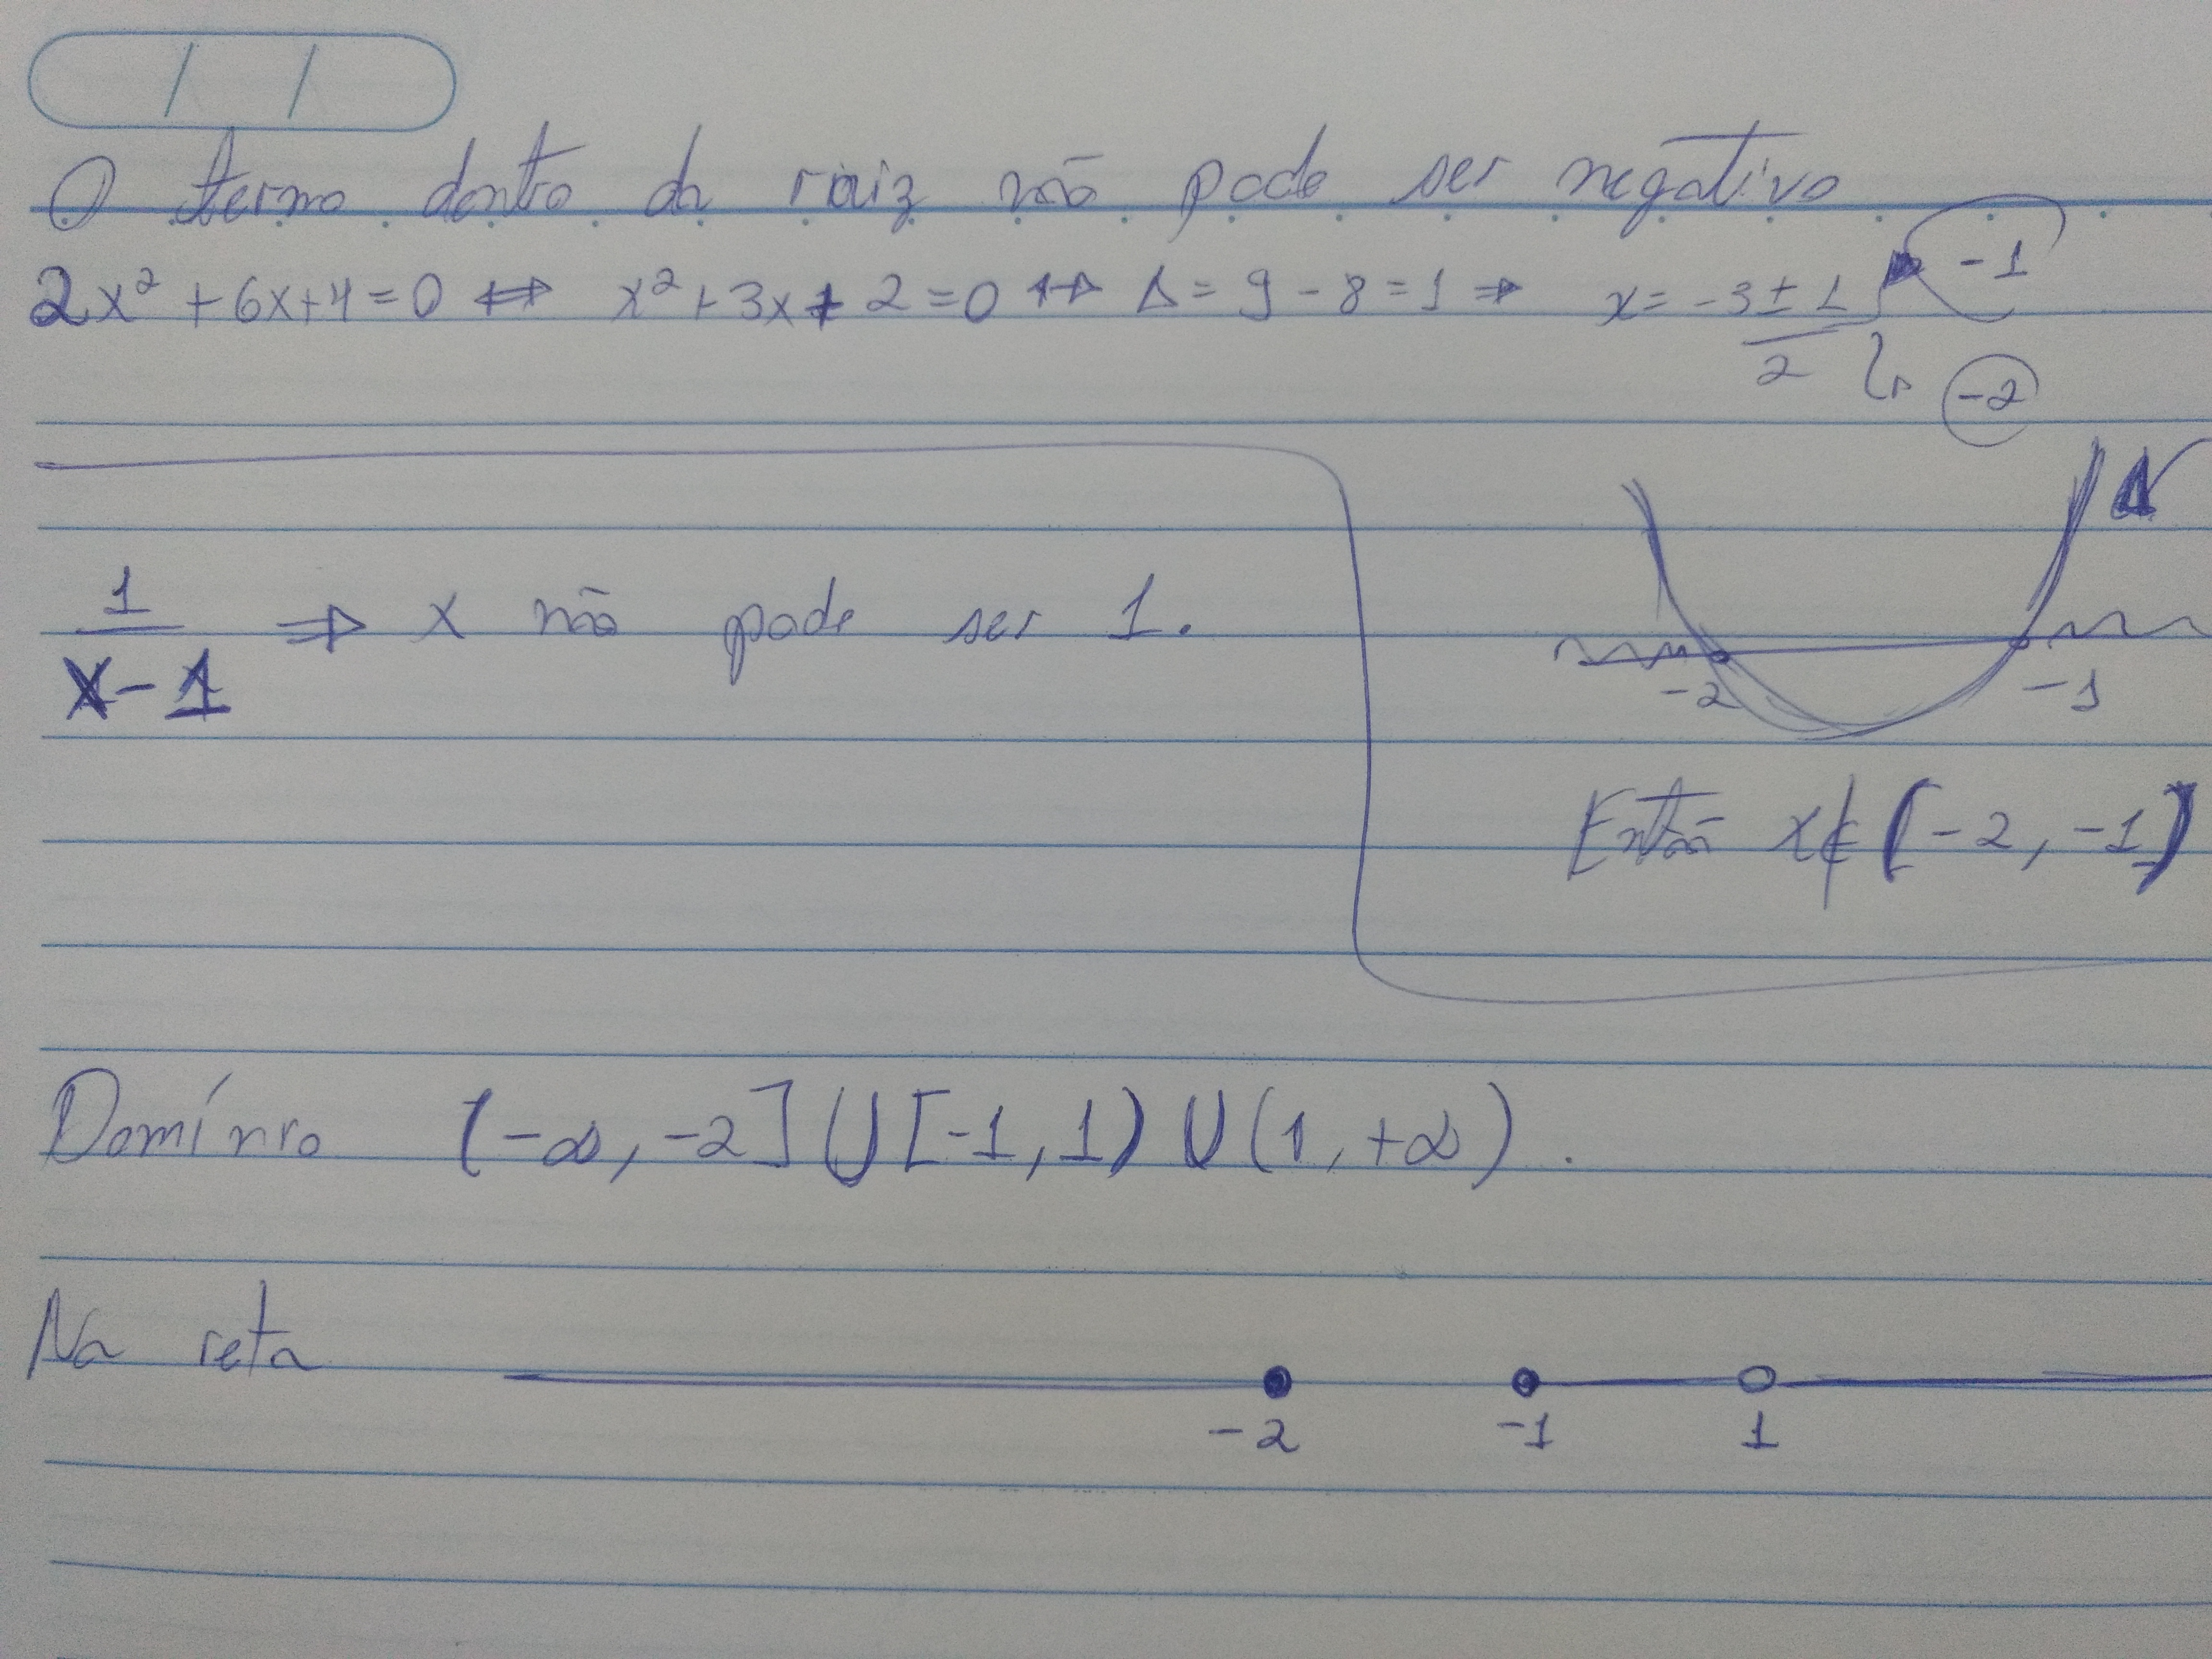 / /
O termo dentro da raiz não pode ser negativo
2x² + 6x + 4 = 0 ⇔ x² + 3x + 2 = 0 ⇔ Δ = 9 - 8 = 1 ⇒ x = -3 ± 1 / 2 -1
-2
1 / x - 1 ⇒ x não pode ser 1.
-2 -1
Então x ∉ (-2, -1)
Domínio (-∞, -2] ∪ [-1, 1) ∪ (1, +∞).
Na reta
-2 -1 1